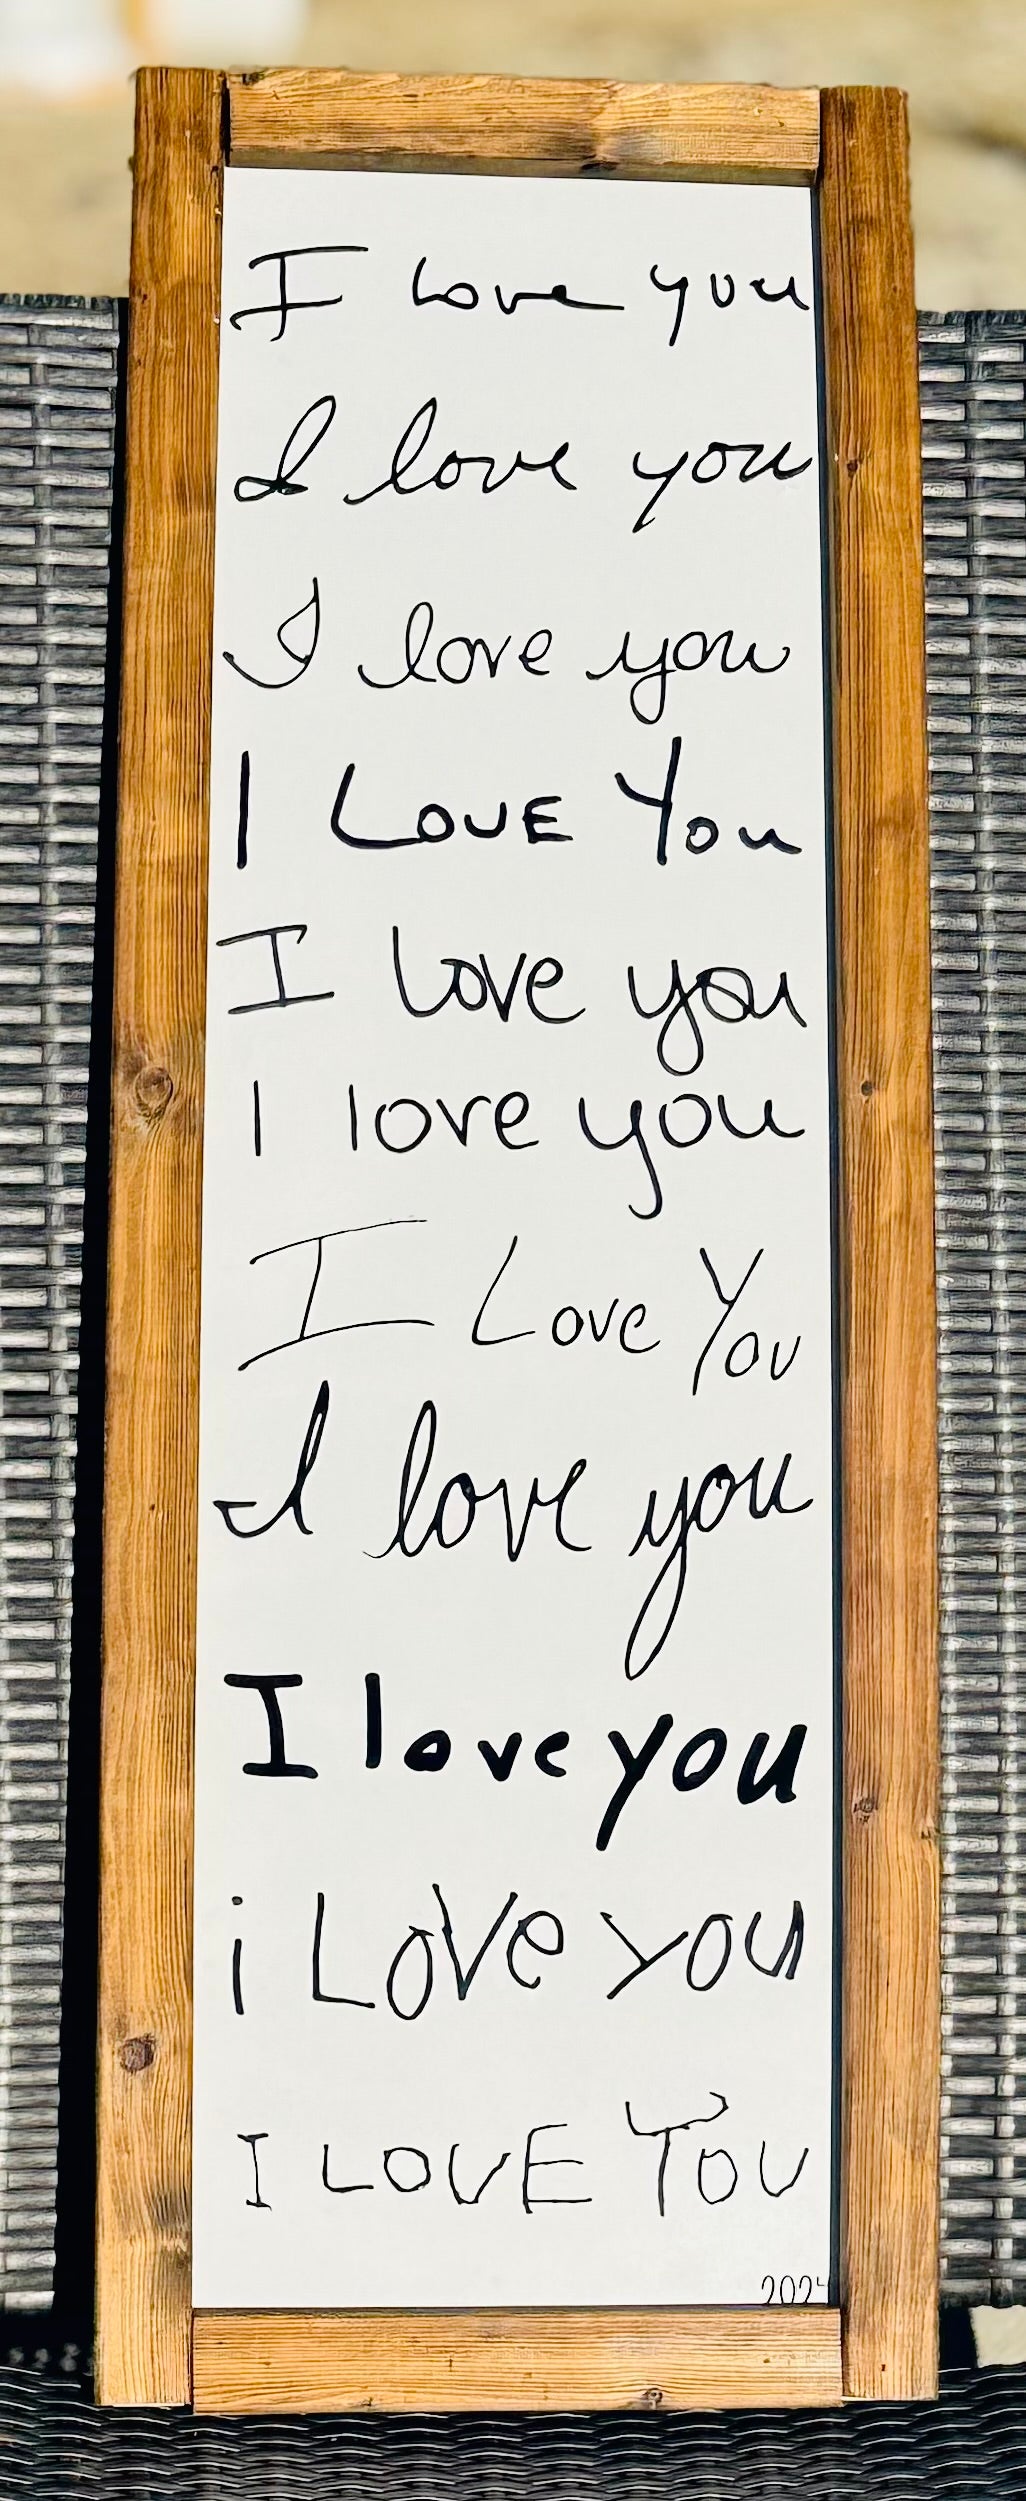 I love you
I love you
I love you
I LOVE You
I love you
I love you
I Love You
I love you
I love you
i LOVe you
I LOVE YOU
2024